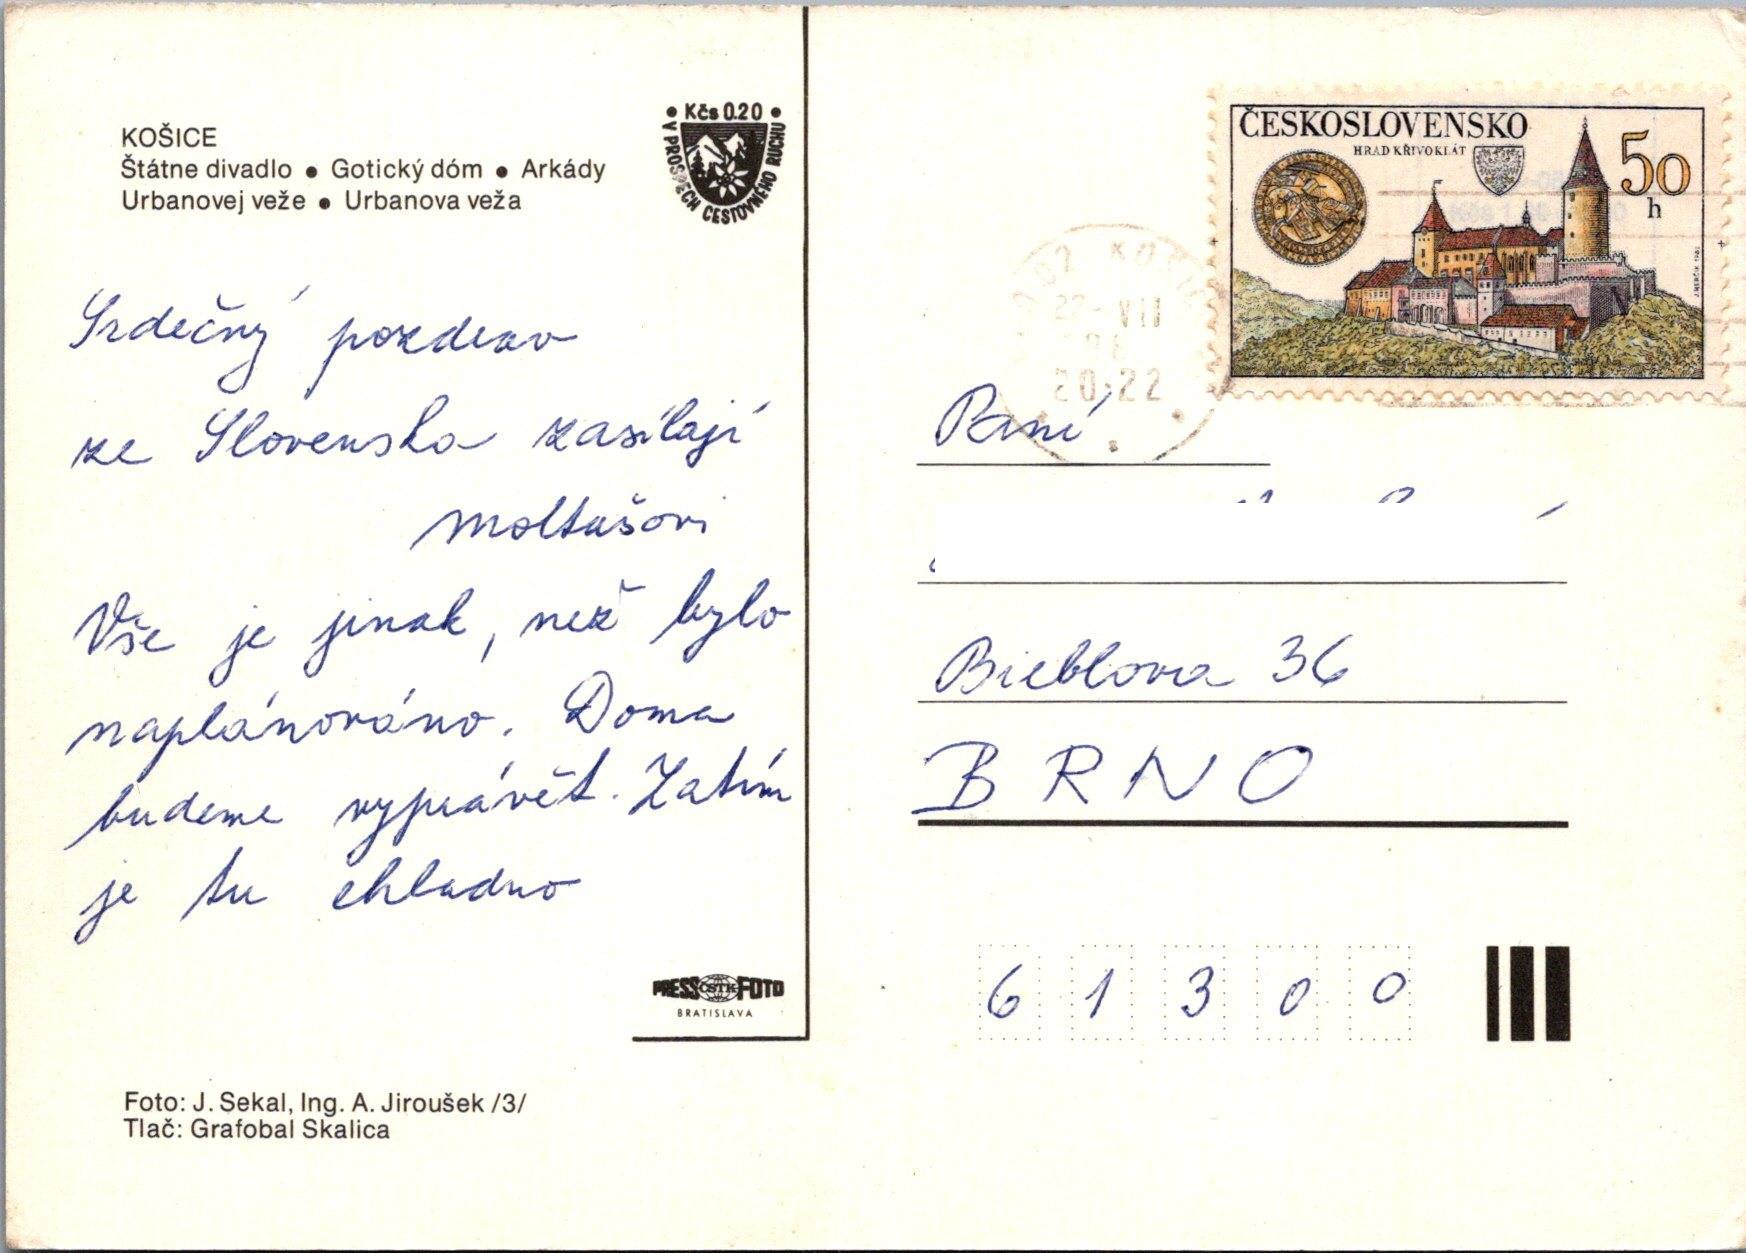 KOŠICE
Štátne divadlo • Gotický dóm • Arkády
Urbanovej veže • Urbanova veža
• Kčs 0.20 •
V PROSPECH CESTOVNÉHO RUCHU
Srdečný pozdrav
ze Slovenska zasílají
Moltašovi
Vše je jinak, než bylo
naplánováno. Doma
budeme vyprávět. Zatím
je tu chladno
PRESS ČSTK FOTO
BRATISLAVA
Foto: J. Sekal, Ing. A. Jiroušek /3/
Tlač: Grafobal Skalica
ČESKOSLOVENSKO
HRAD KŘIVOKLÁT
50
h
22.-VII
20.22
Paní
Bieblova 36
BRNO
61300